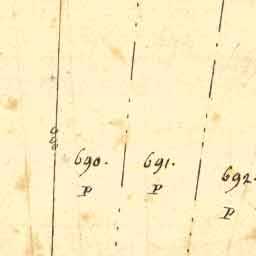 690.
P
691.
P
692.
P